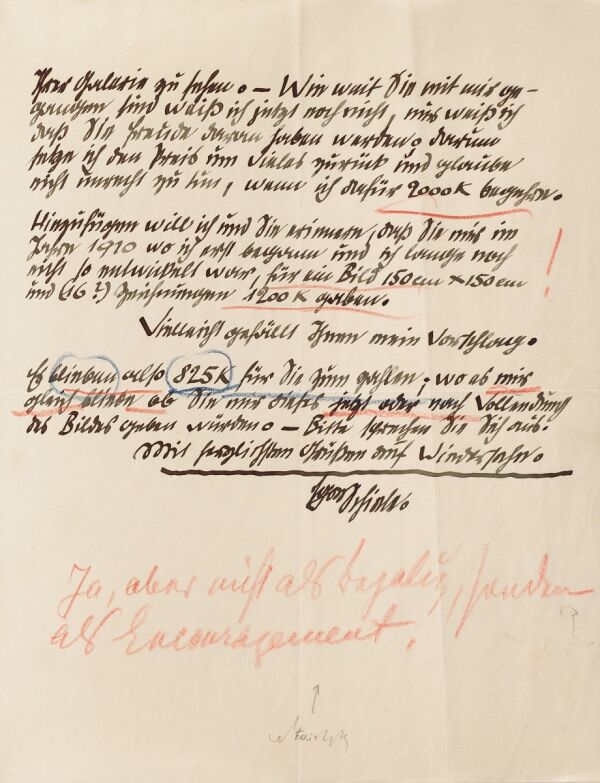 Ihrer Galerie zu sehen. – Wie weit Sie mit mir ge-
gangen sind weiß ich jetzt noch nicht, nur weiß ich
daß Sie Freude daran haben werden. darum
setze ich den Preis um Vieles zurück und glaube
nicht unrecht zu tun, wenn ich dafür 2000 K begehre.
Hinzufügen will ich und Sie erinnern, daß Sie mir im
Jahre 1910 wo ich erst begann und ich lange noch
nicht so entwickelt war, für ein Bild 150 cm × 150 cm !
und (16 ?) Zeichnungen 1200 K gaben.
Vielleicht gefällt Ihnen mein Vorschlag.
Es blieben also 825 K für Sie zum zahlen; wo es mir
gleich bliebe ob Sie mir dieses jetzt oder nach Vollendung
des Bildes geben würden. – Bitte sprechen Sie Sich aus.
Mit herzlichsten Grüßen auf Wiedersehn.
Egon Schiele.
Ja, aber nicht als Bezahlg, sondern
als Encouragement.